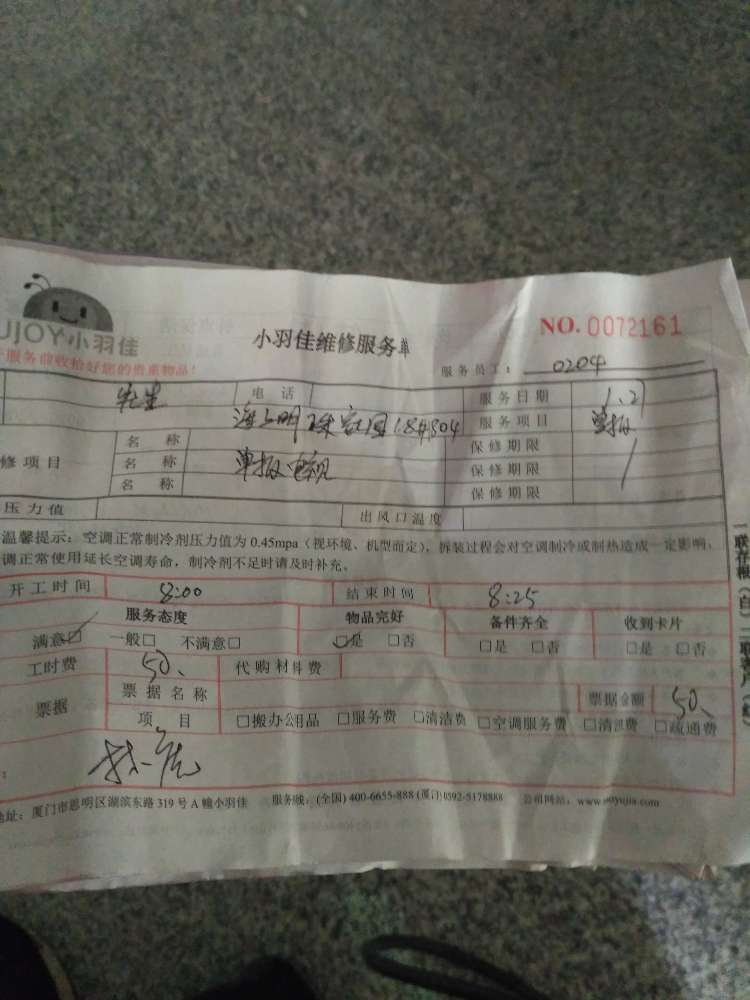 UJOY小羽佳
小羽佳维修服务单
NO. 0072161
服务前收拾好您的贵重物品!
服务员工: 0204
先生 电话 服务日期 1.2
海上明珠 18#804 服务项目
修项目 名称 保修期限
名称 电视 保修期限
名称 保修期限
压力值 出风口温度
温馨提示: 空调正常制冷剂压力值为 0.45mpa (视环境、机型而定), 拆装过程会对空调制冷或制热造成一定影响、
调正常使用延长空调寿命, 制冷剂不足时请及时补充。
开工时间 8:00 结束时间 8:25
服务态度 物品完好 备件齐全 收到卡片
满意□ 一般□ 不满意□ □是 □否 □是 □否 □是 □否
工时费 50、 代购材料费
票据 票据名称 票据金额 50、
项目 □搬办公用品 □服务费 □清洁费 □空调服务费 □清洗费 □疏通费
地址: 厦门市思明区湖滨东路 319 号 A 幢小羽佳 服务线: (全国) 400-6655-888 (厦门) 0592-5178888 公司网站: www.xoyujia.com